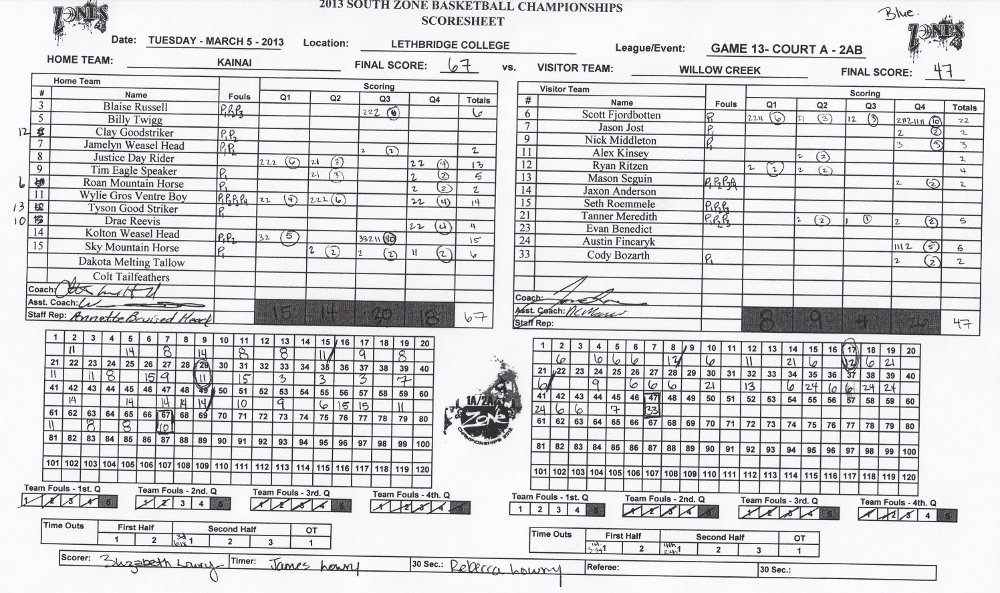 2013 SOUTH ZONE BASKETBALL CHAMPIONSHIPS
SCORESHEET
Blue.
Date: TUESDAY - MARCH 5 - 2013 Location: LETHBRIDGE COLLEGE League/Event: GAME 13- COURT A - 2AB
HOME TEAM: KAINAI FINAL SCORE: 67 vs. VISITOR TEAM: WILLOW CREEK FINAL SCORE: 47
Home Team Scoring
# Name Fouls Q1 Q2 Q3 Q4 Totals
3 Blaise Russell P1P2P3 222 6 6
5 Billy Twigg
12 Clay Goodstriker P1P2
7 Jamelyn Weasel Head P1P2 2 2 2
8 Justice Day Rider 222 6 21 3 22 4 13
9 Tim Eagle Speaker P1 21 3 2 2 5
6 Roan Mountain Horse P1 2 2 2
11 Wylie Gros Ventre Boy P1P2P3P4 22 4 222 6 22 4 14
13 Tyson Good Striker P1
10 Drae Reevis 22 4 4
14 Kolton Weasel Head P1P2 32 5 10 15
15 Sky Mountain Horse P1 2 2 2 2 11 2 6
Dakota Melting Tallow
Colt Tailfeathers
Coach:
Asst. Coach:
Staff Rep: Annette Bruised Head
15 14 20 18 67
Visitor Team Scoring
# Name Fouls Q1 Q2 Q3 Q4 Totals
6 Scott Fjordbotten P1 2211 6 21 3 12 3 10 22
7 Jason Jost P1 2 2 2
9 Nick Middleton P1 3 3 3
11 Alex Kinsey 2 2 2
12 Ryan Ritzen P1 2 2 2 2 4
13 Mason Seguin P1P2P3P4 2 2 2
14 Jaxon Anderson P1
15 Seth Roemmele P1P2
21 Tanner Meredith P1P2P3 2 2 1 1 2 2 5
23 Evan Benedict
24 Austin Fincaryk 1112 5 6
33 Cody Bozarth P1 2 2 2
Coach:
Asst. Coach:
Staff Rep:
8 9 4 26 47
1 2 3 4 5 6 7 8 9 10 11 12 13 14 15 16 17 18 19 20
11 14 8 14 8 8 11 9 8
21 22 23 24 25 26 27 28 29 30 31 32 33 34 35 36 37 38 39 40
11 11 8 15 9 11 15 3 3 3 7
41 42 43 44 45 46 47 48 49 50 51 52 53 54 55 56 57 58 59 60
14 14 14 14 14 10 9 6 15 15 11
61 62 63 64 65 66 67 68 69 70 71 72 73 74 75 76 77 78 79 80
11 8 8 10
81 82 83 84 85 86 87 88 89 90 91 92 93 94 95 96 97 98 99 100
101 102 103 104 105 106 107 108 109 110 111 112 113 114 115 116 117 118 119 120
1A/2A
ZONE
1 2 3 4 5 6 7 8 9 10 11 12 13 14 15 16 17 18 19 20
6 6 6 6 12 6 11 21 6 12 6 21
21 22 23 24 25 26 27 28 29 30 31 32 33 34 35 36 37 38 39 40
6 9 6 6 6 21 13 6 24 6 6 24 24
41 42 43 44 45 46 47 48 49 50 51 52 53 54 55 56 57 58 59 60
24 6 6 7 33
61 62 63 64 65 66 67 68 69 70 71 72 73 74 75 76 77 78 79 80
81 82 83 84 85 86 87 88 89 90 91 92 93 94 95 96 97 98 99 100
101 102 103 104 105 106 107 108 109 110 111 112 113 114 115 116 117 118 119 120
Team Fouls - 1st. Q Team Fouls - 2nd. Q Team Fouls - 3rd. Q Team Fouls - 4th. Q
1 2 3 4 5 1 2 3 4 5 1 2 3 4 5 1 2 3 4 5
Team Fouls - 1st. Q Team Fouls - 2nd. Q Team Fouls - 3rd. Q Team Fouls - 4th. Q
1 2 3 4 5 1 2 3 4 5 1 2 3 4 5 1 2 3 4 5
Time Outs First Half Second Half OT
1 2 1 2 3 1
Time Outs First Half Second Half OT
1 2 1 2 3 1
Scorer: Elizabeth Lowry Timer: James Lowry 30 Sec.: Rebecca Lowry Referee: 30 Sec.: